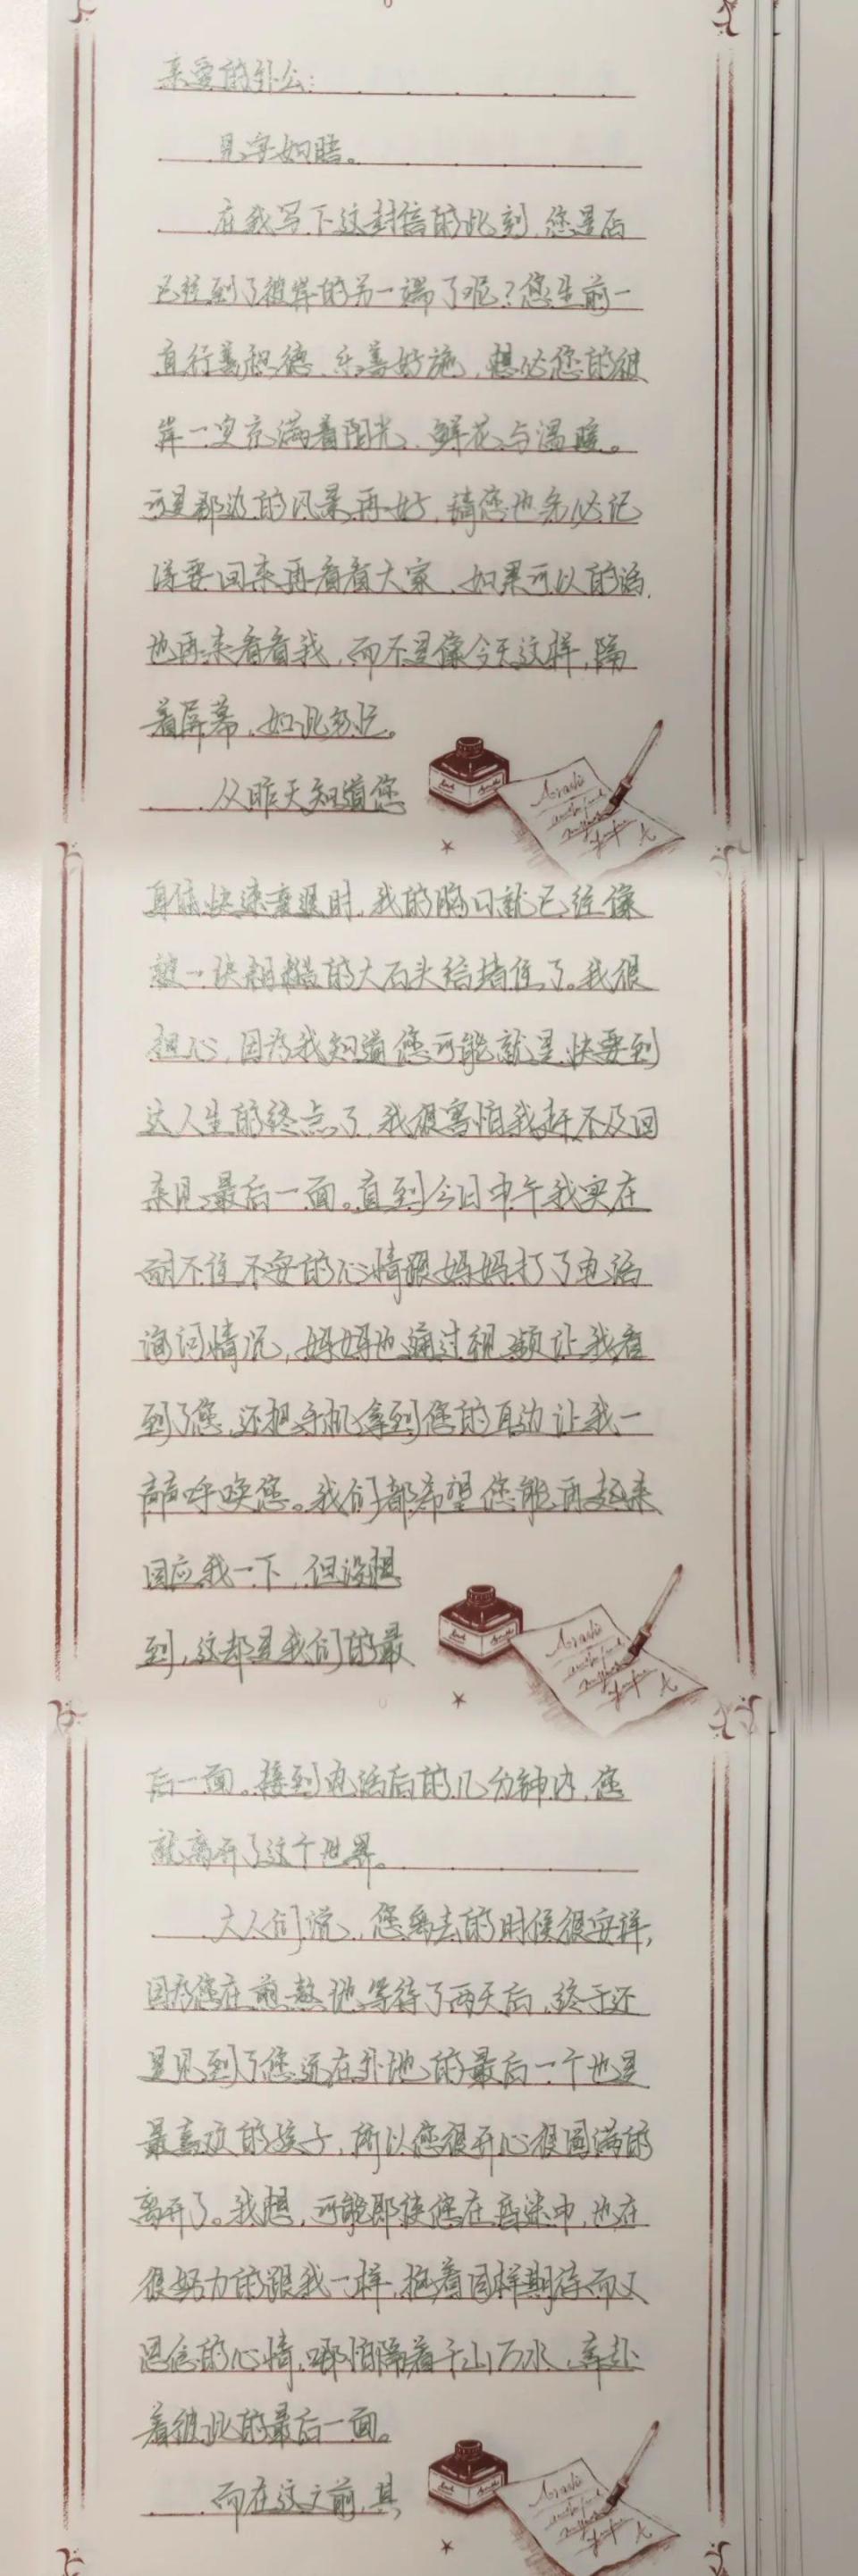 亲爱的外公：
见字如晤。
在我写下这封信的此刻，您是否
已经到了彼岸的另一端了呢？您生前一
直行善积德、乐善好施，想必您的彼
岸一定充满着阳光、鲜花与温暖。
可是那边的风景再好，请您也务必记
得要回来再看看大家，如果可以的话，
也再来看看我，而不是像今天这样，隔
着屏幕，如此匆忙。
从昨天知道您
身体快速衰退时，我的胸口就已经像
被一块粗糙的大石头给堵住了。我很
担心，因为我知道您可能就是快要到
达人生的终点了，我很害怕我赶不及回
来见最后一面。直到今日中午我实在
耐不住不安的心情跟妈妈打了电话
询问情况，妈妈也通过视频让我看
到了您，还把手机拿到您的耳边让我一
声声呼唤您。我们都希望您能再起来
回应我一下，但没想
到，这却是我们的最
后一面。接到电话后的几分钟内，您
就离开了这个世界。
大人们说，您离去的时候很安详，
因为您在煎熬地等待了两天后，终于还
是见到了您远在外地的最后一个也是
最喜欢的孩子，所以您很开心很圆满的
离开了。我想，可能即使您在昏迷中，也在
很努力的跟我一样，抱着同样期待而又
的心情，哪怕隔着千山万水，奔赴
着彼此的最后一面。
而在这之前，其